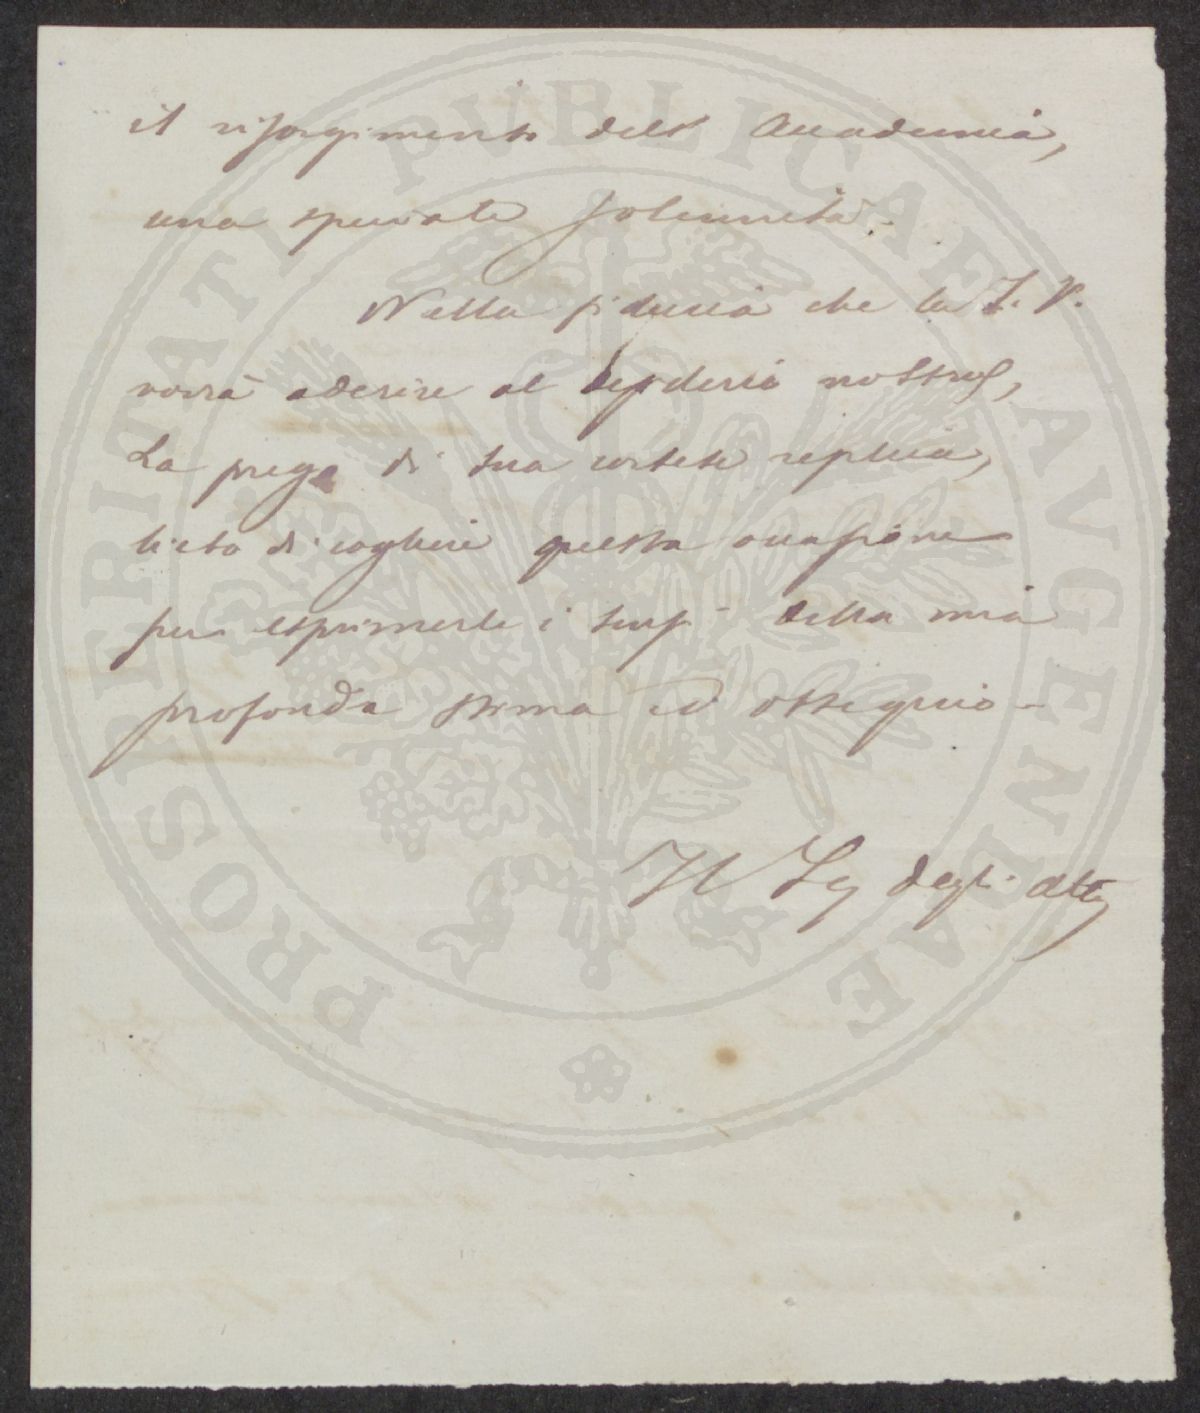 PROSPERITATI PVBLICAE AVGENDAE
il risorgimento dell' Accademia,
una speciale solennità.
Nella fiducia che la S. V.
vorrà aderire al desiderio nostro,
La prego di sua cortese replica,
lieto di cogliere questa occasione
per esprimerle i sensi della mia
profonda stima ed ossequio -
Il Seg degli Atti